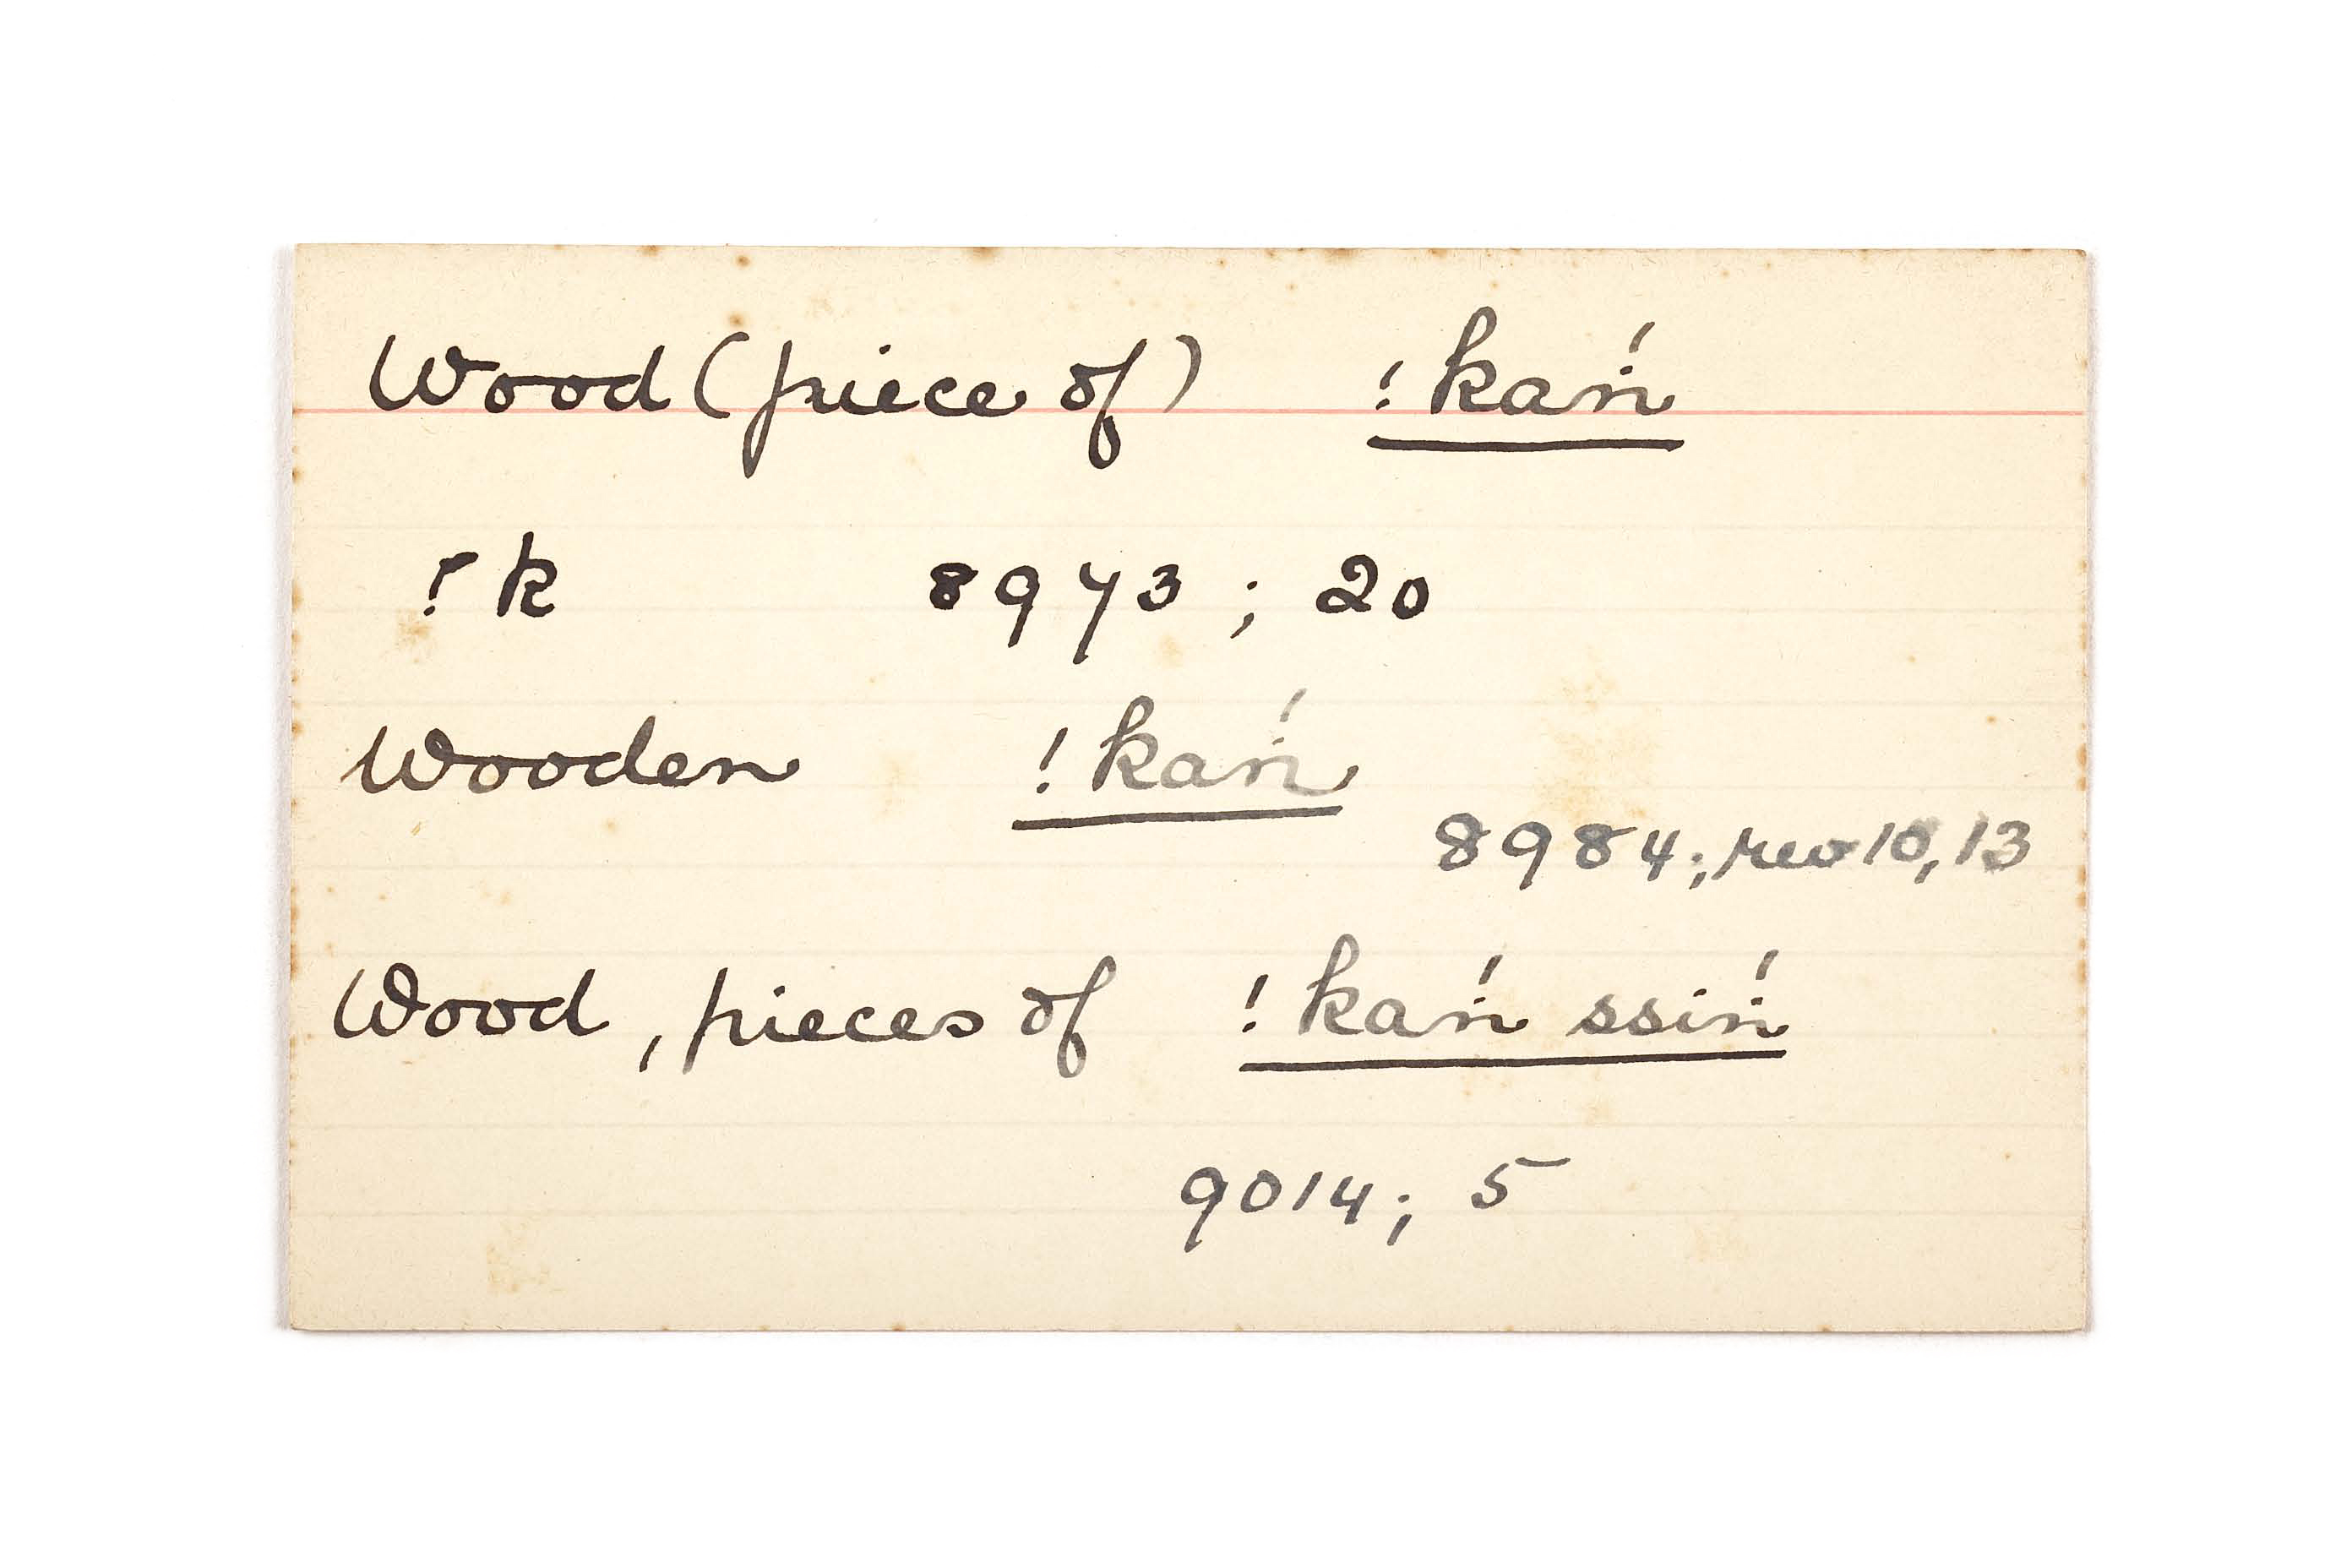 Wood (piece of) !kaṅ́
!k 8973 ; 20
Wooden !kaṅ́
8984; rev 10, 13
Wood, pieces of !kaṅ́ ssiṅ́
9014; 5